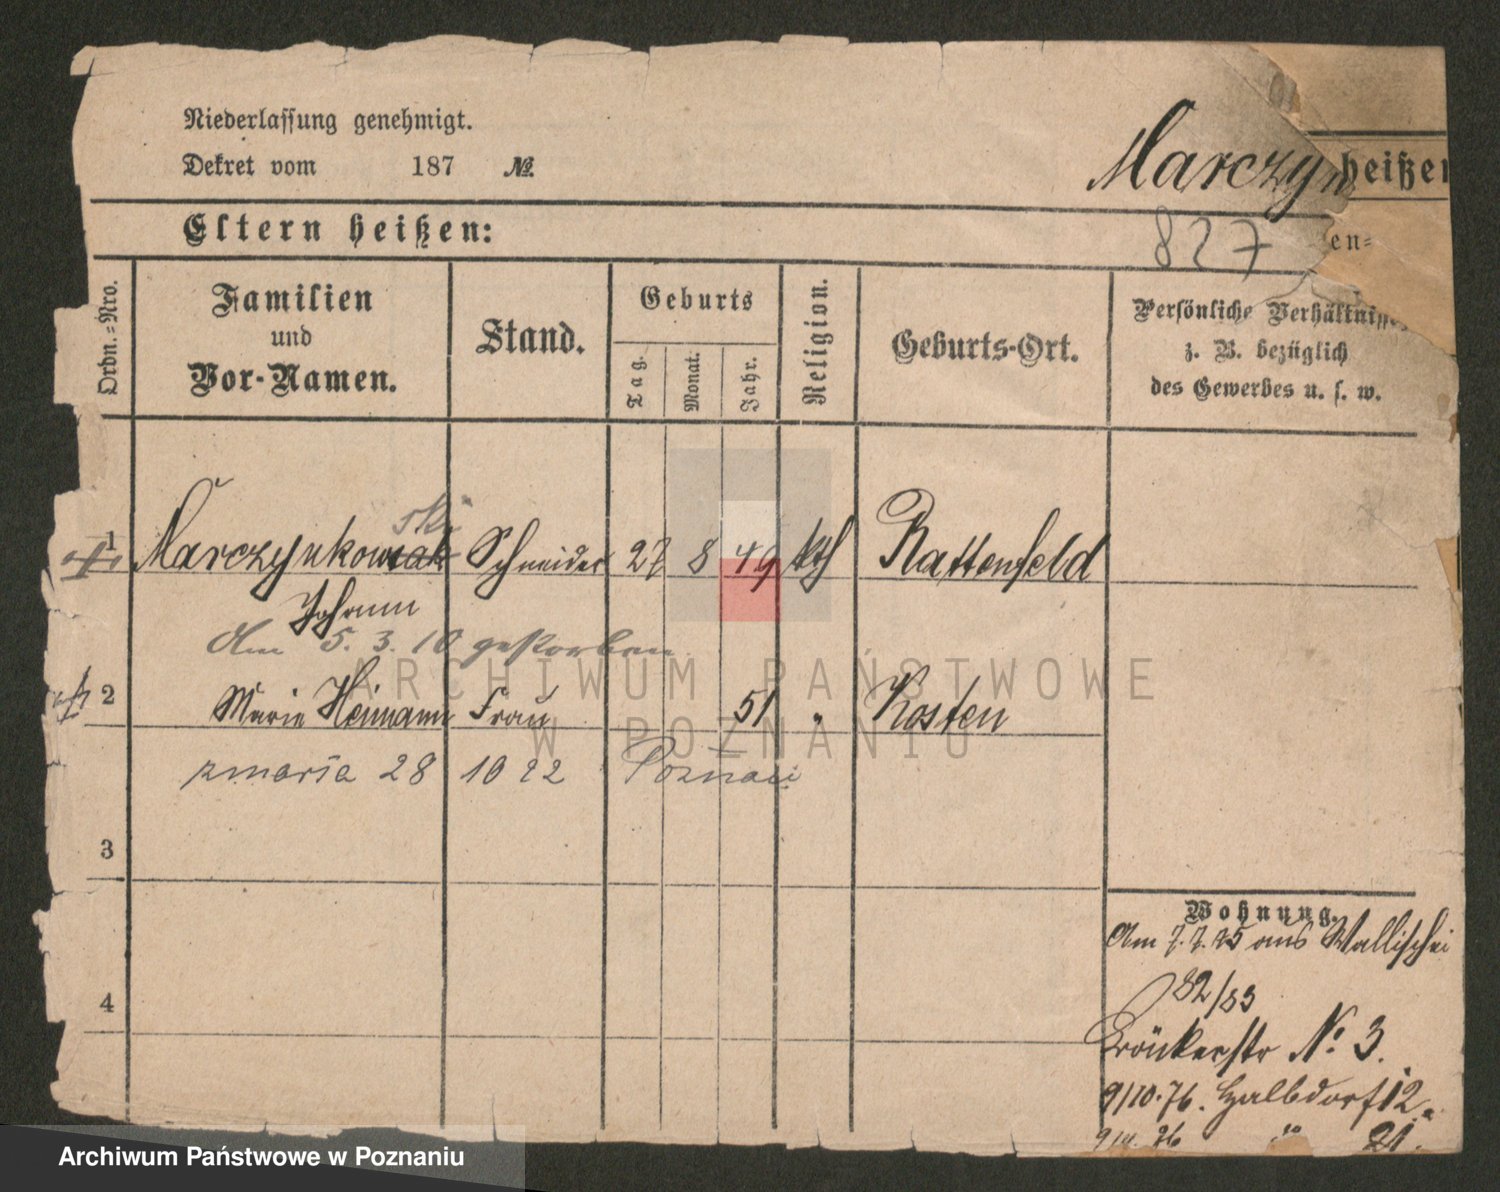 Niederlassung genehmigt.
Dekret vom 187 №
Marczyn
heißen
Eltern heißen:
827
en=
Ordn.=Nro.
Familien
und
Vor-Namen.
Stand.
Geburts
Tag.
Monat.
Jahr.
Religion.
Geburts-Ort.
Persönliche Verhältnisse
z. B. bezüglich
des Gewerbes u. s. w.
ski
1 Marczynkowiak Schneider 27 8 49 kth Rattenfeld
Johann
Am 5. 3. 10 gestorben.
2 Marie Heimann Frau 51 " Kosten
zmarła 28 10 22 Poznań
3
4
Wohnung.
Am 7.7.75 aus Wallischei
82/83
Bröckerstr No 3.
9/10.76. Halbdorf 12.
21.
ARCHIWUM PAŃSTWOWE
W POZNANIU
Archiwum Państwowe w Poznaniu